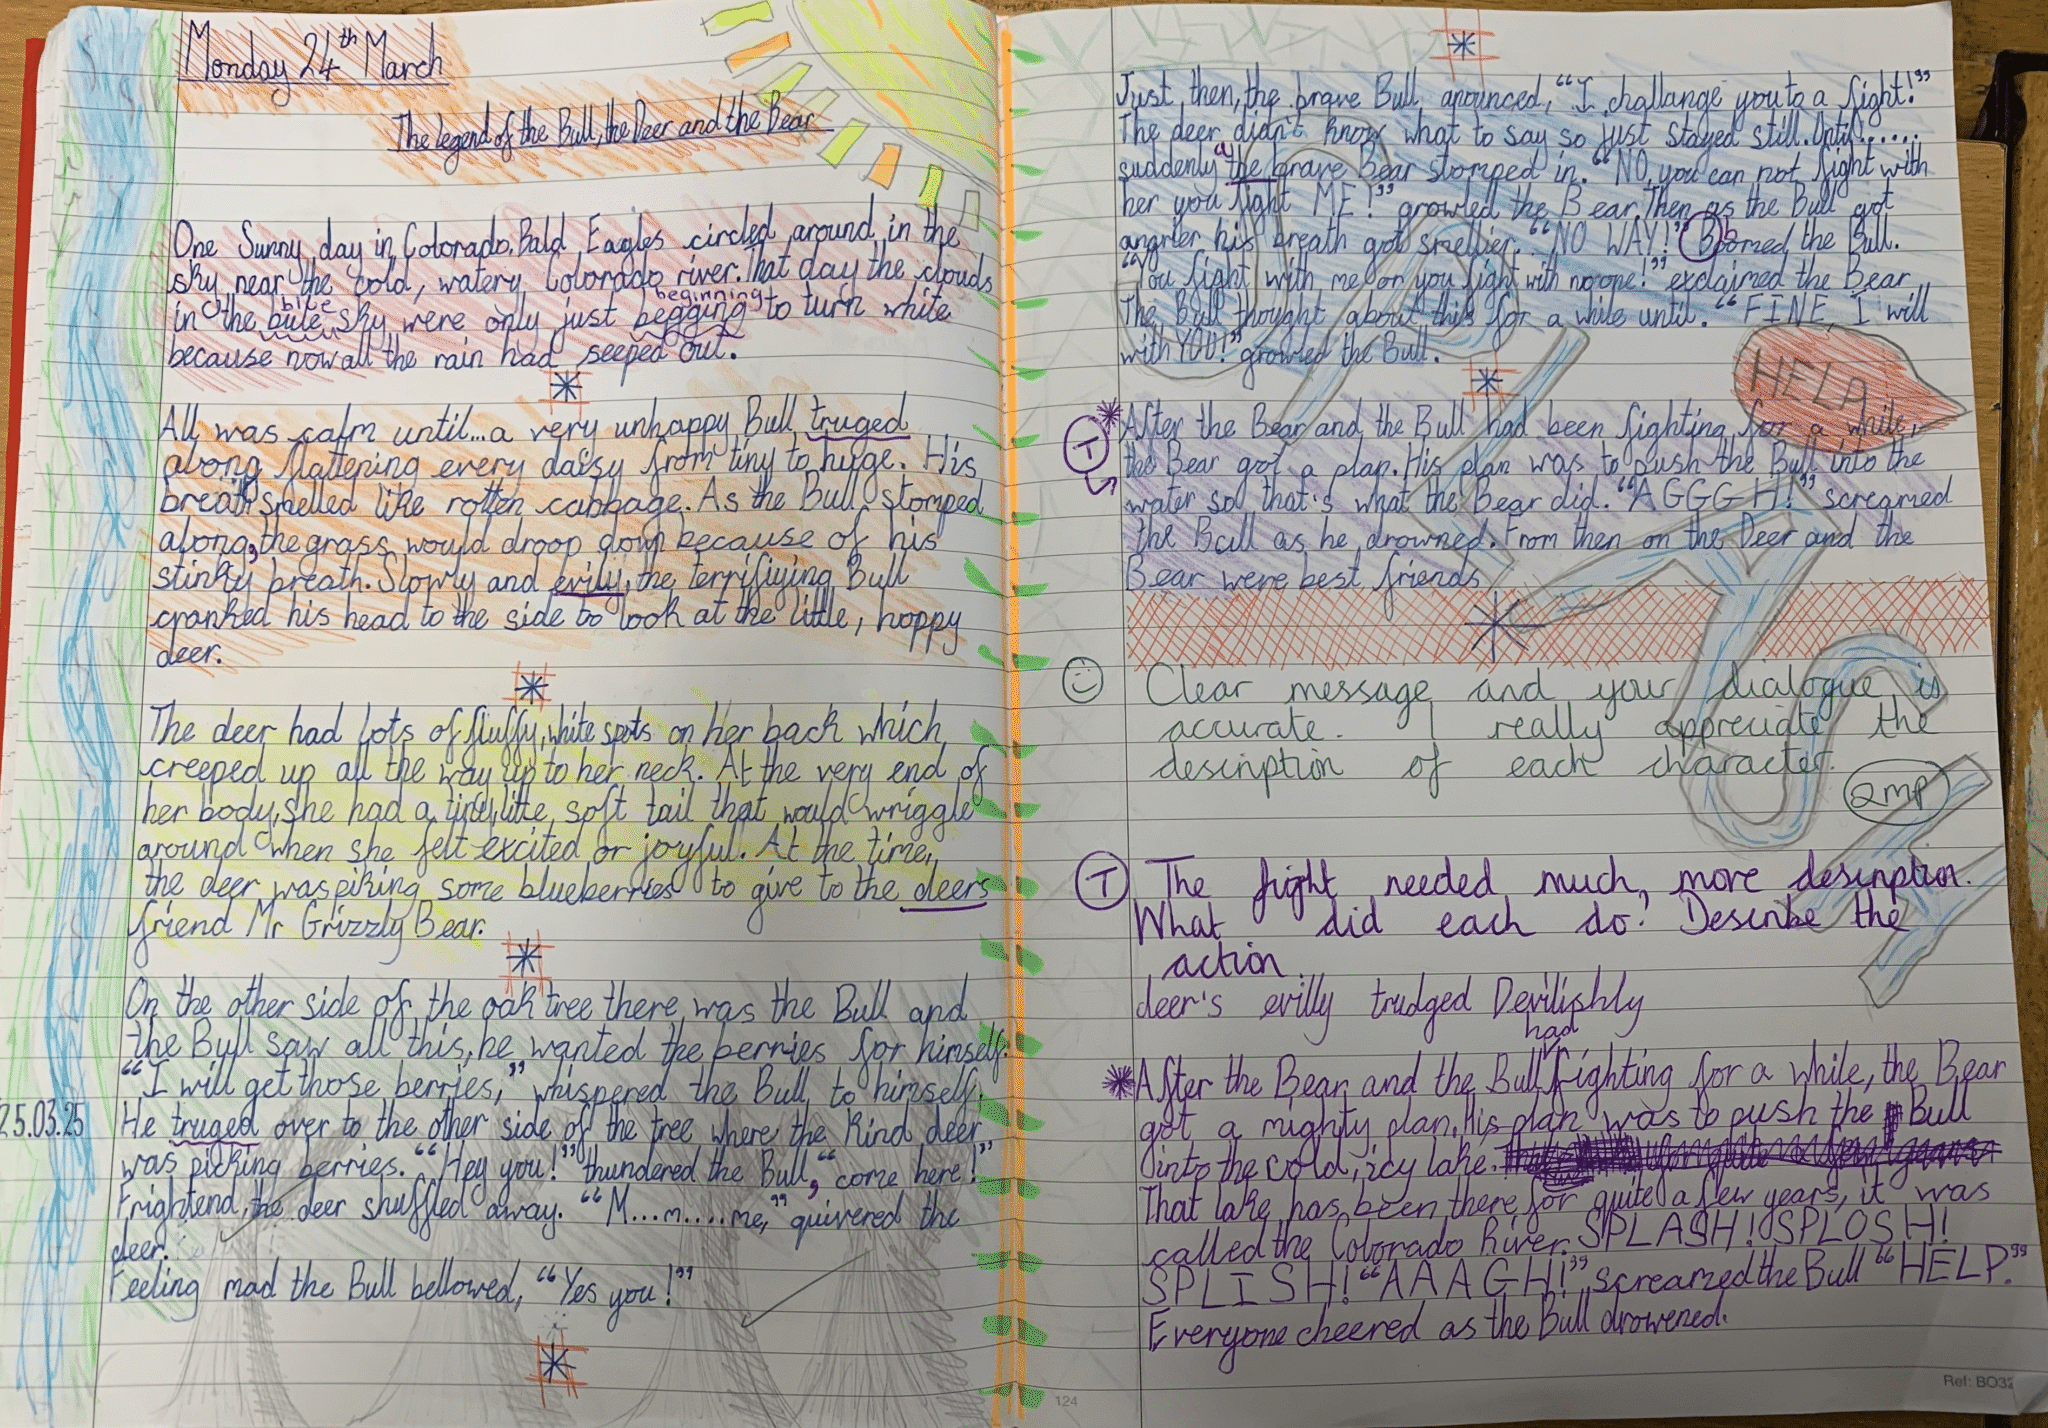 Monday 24th March
The legend of the Bull, the Deer and the Bear
One Sunny day in Colorado. Bald Eagles circled around in the
sky near the cold, watery Colorado river. That day the clouds
beginning
in the bule sky were only just begging to turn white
because now all the rain had seeped out.
All was calm until...a very unhappy Bull truged
along flattering every daisy from tiny to huge. His
breath smelled like rotten cabbage. As the Bull stomped
along, the grass would droop down because of his
stinky breath. Slowly and evily, the terrifiying Bull
cranked his head to the side to look at the little, hoppy
deer.
The deer had lots of fluffy, white spots on her back which
creeped up all the way up to her neck. At the very end of
her body, she had a tiny, litte, soft tail that would wriggle
around when she felt excited or joyful. At the time,
the deer was piking some blueberries to give to the deers
friend Mr Grizzly Bear.
On the other side of the oak tree there was the Bull and
the Bull saw all this, he wanted the berries for himself.
“I will get those berries,” whispered the Bull to himself.
25.03.25
He truged over to the other side of the tree where the kind deer
was picking berries. “Hey you!” thundered the Bull, “come here!”
Frightend, the deer shuffled away. “M...m....me,” quivered the
deer.
Feeling mad the Bull bellowed, “Yes you!”
Just then, the brave Bull anounced, “I challange you to a fight!”
The deer didn't know what to say so just stayed still. Until.....
suddenly a the brave Bear stomped in. “NO, you can not fight with
her you fight ME!” growled the Bear. Then as the Bull got
angrier his breath got smellier. “NO WAY!” Boomed the Bull.
“You fight with me or you fight with no one!” exclaimed the Bear
The Bull thought about this for a while until. “FINE, I will
with YOU!” growled the Bull.
HELP
T
*After the Bear and the Bull had been fighting for a while,
the Bear got a plan. His plan was to push the Bull into the
water so that's what the Bear did. “AGGGH!” screamed
the Bull as he drowned. From then on the Deer and the
Bear were best friends
Clear message and your dialogue is
accurate. I really appreciate the
description of each character.
2MP
T The fight needed much, more description.
What did each do? Describe the
action.
deer's evilly trudged Devilishly
had
*After the Bear and the Bull fighting for a while, the Bear
got a mighty plan, his plan was to push the Bull
into the cold, icy lake.
That lake has been there for quite a few years, it was
called the Colorado River. SPLASH! SPLOSH!
SPLISH! “AAAGH!” screamed the Bull “HELP.”
Everyone cheered as the Bull drowened.
124
Ref: BO32